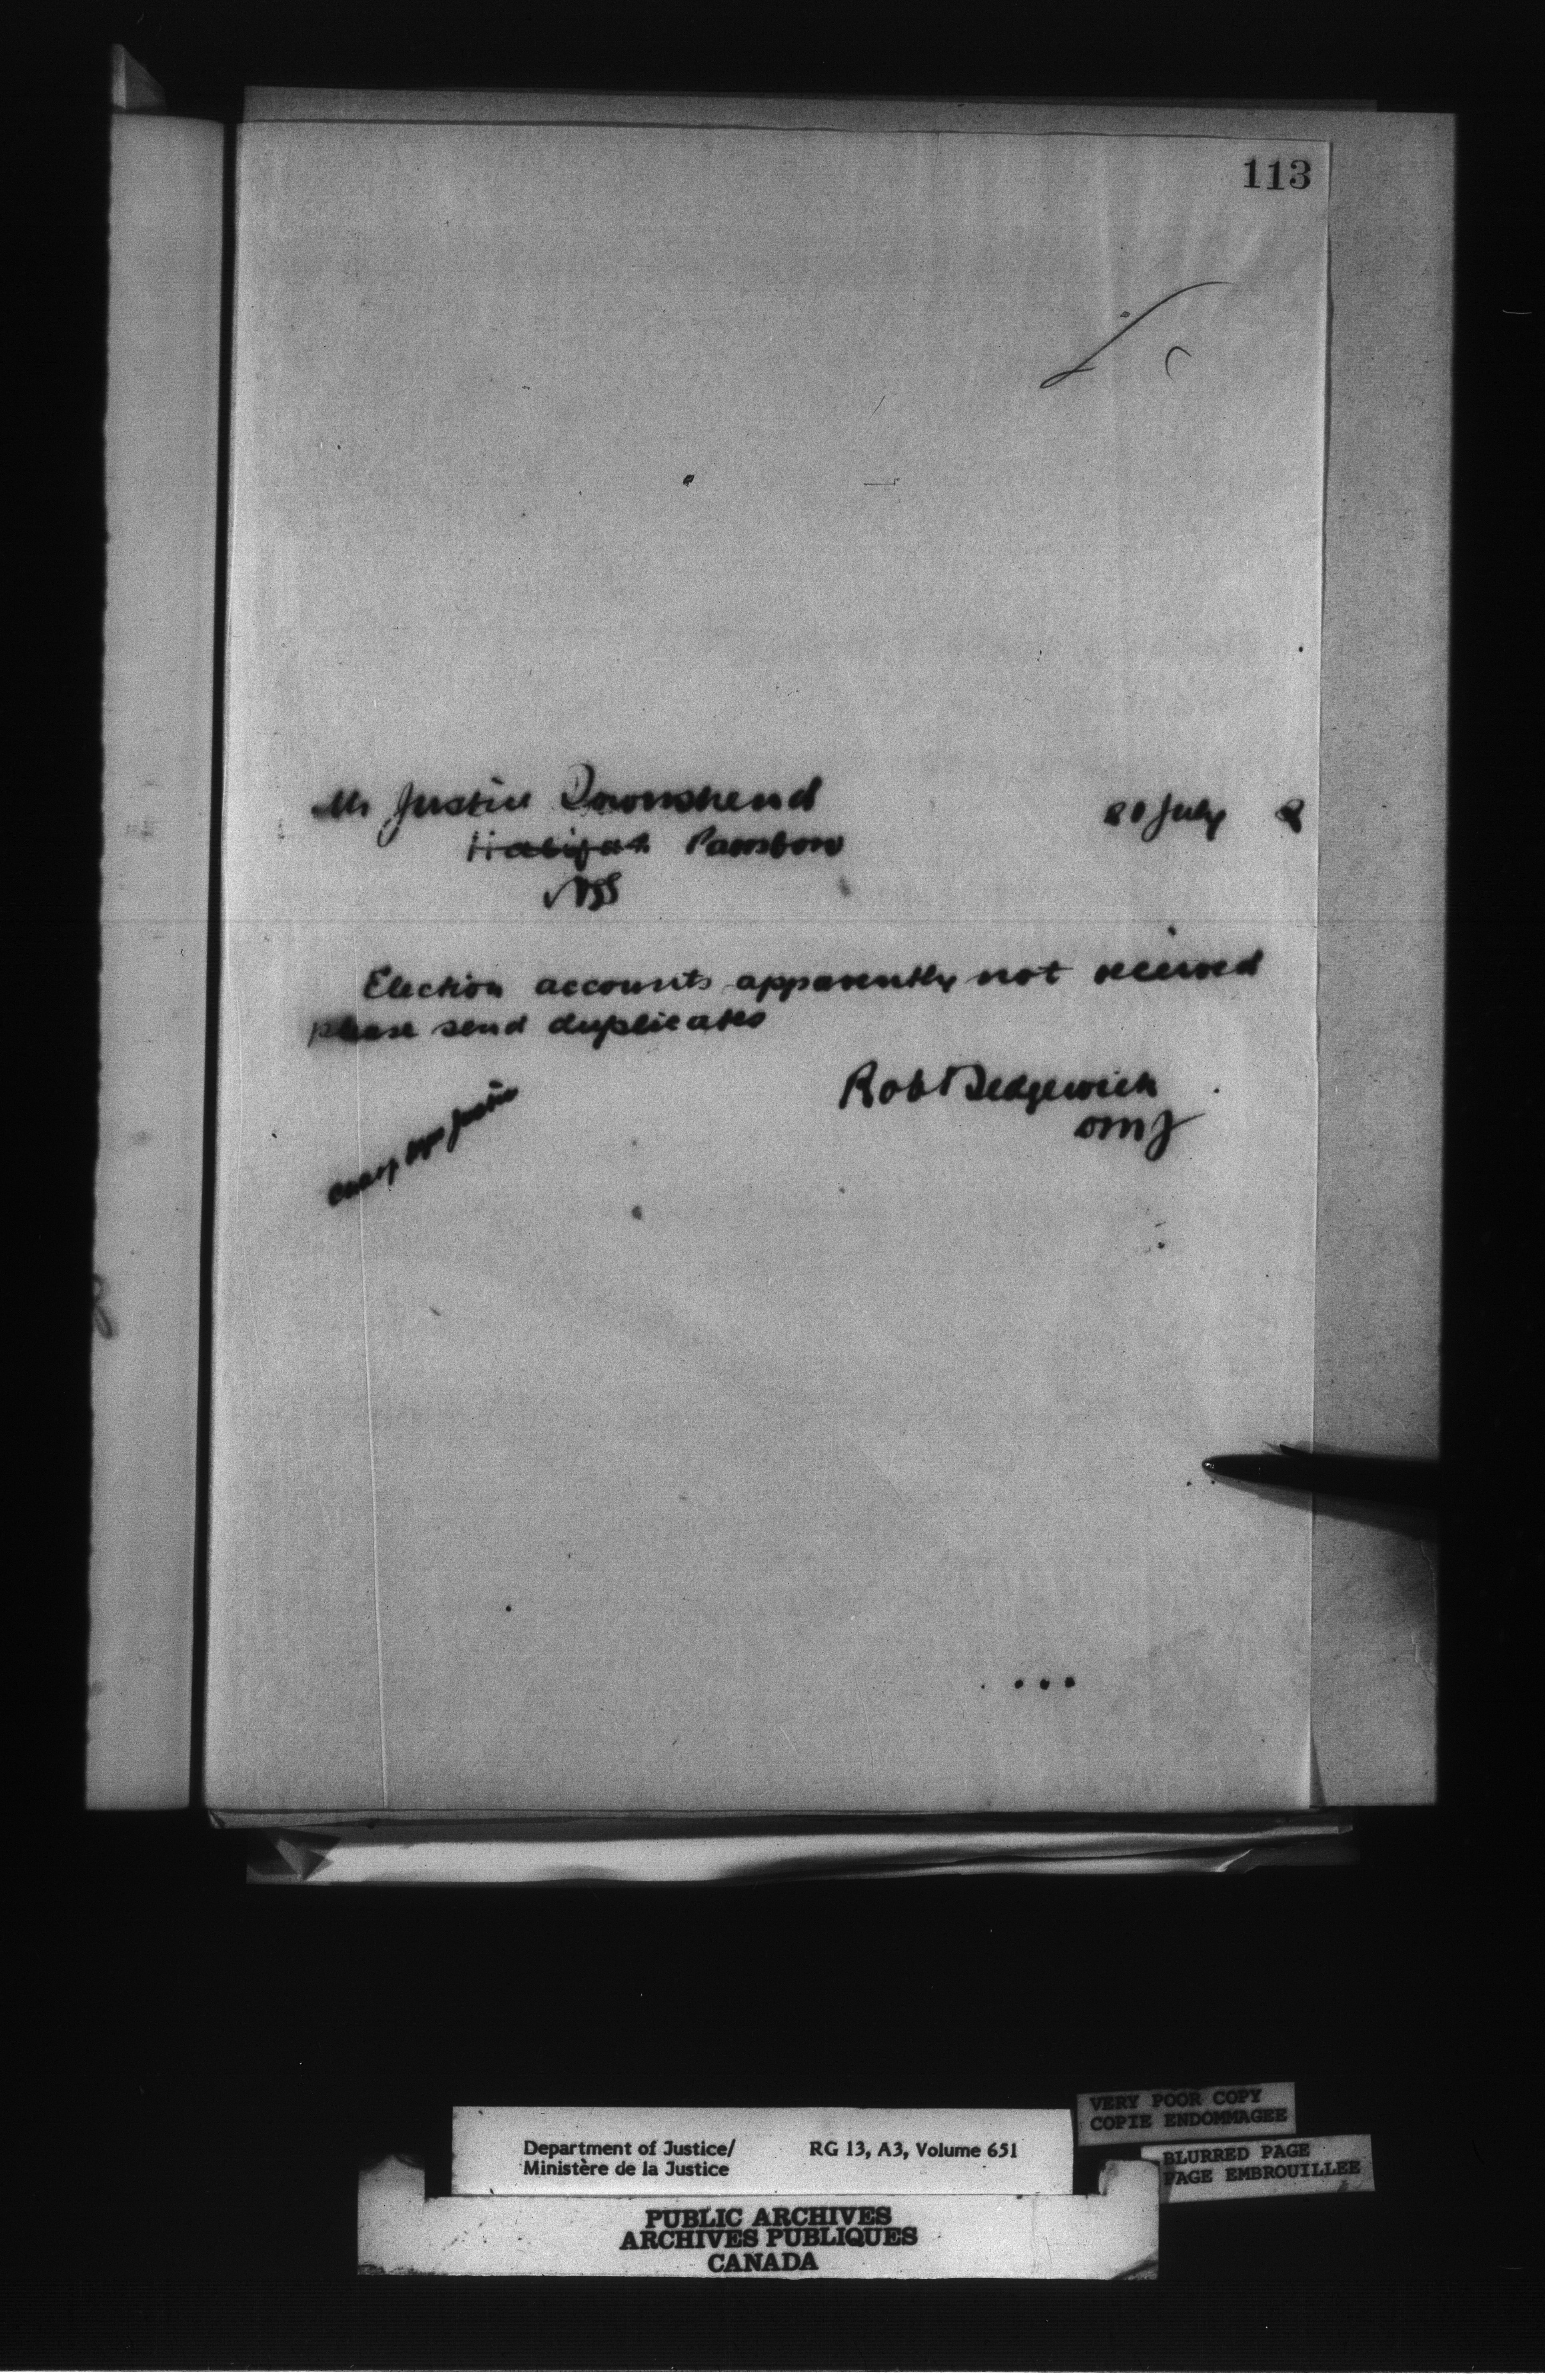 113
Mr Justice Townshend
20 July 8
Halifax Parrsboro
NS
Election accounts apparently not received
please send duplicates
Rob Sedgewick
DMJ
Justice
Department of Justice/
Ministère de la Justice
RG 13, A3, Volume 651
VERY POOR COPY
COPIE ENDOMMAGEE
BLURRED PAGE
PAGE EMBROUILLEE
PUBLIC ARCHIVES
ARCHIVES PUBLIQUES
CANADA